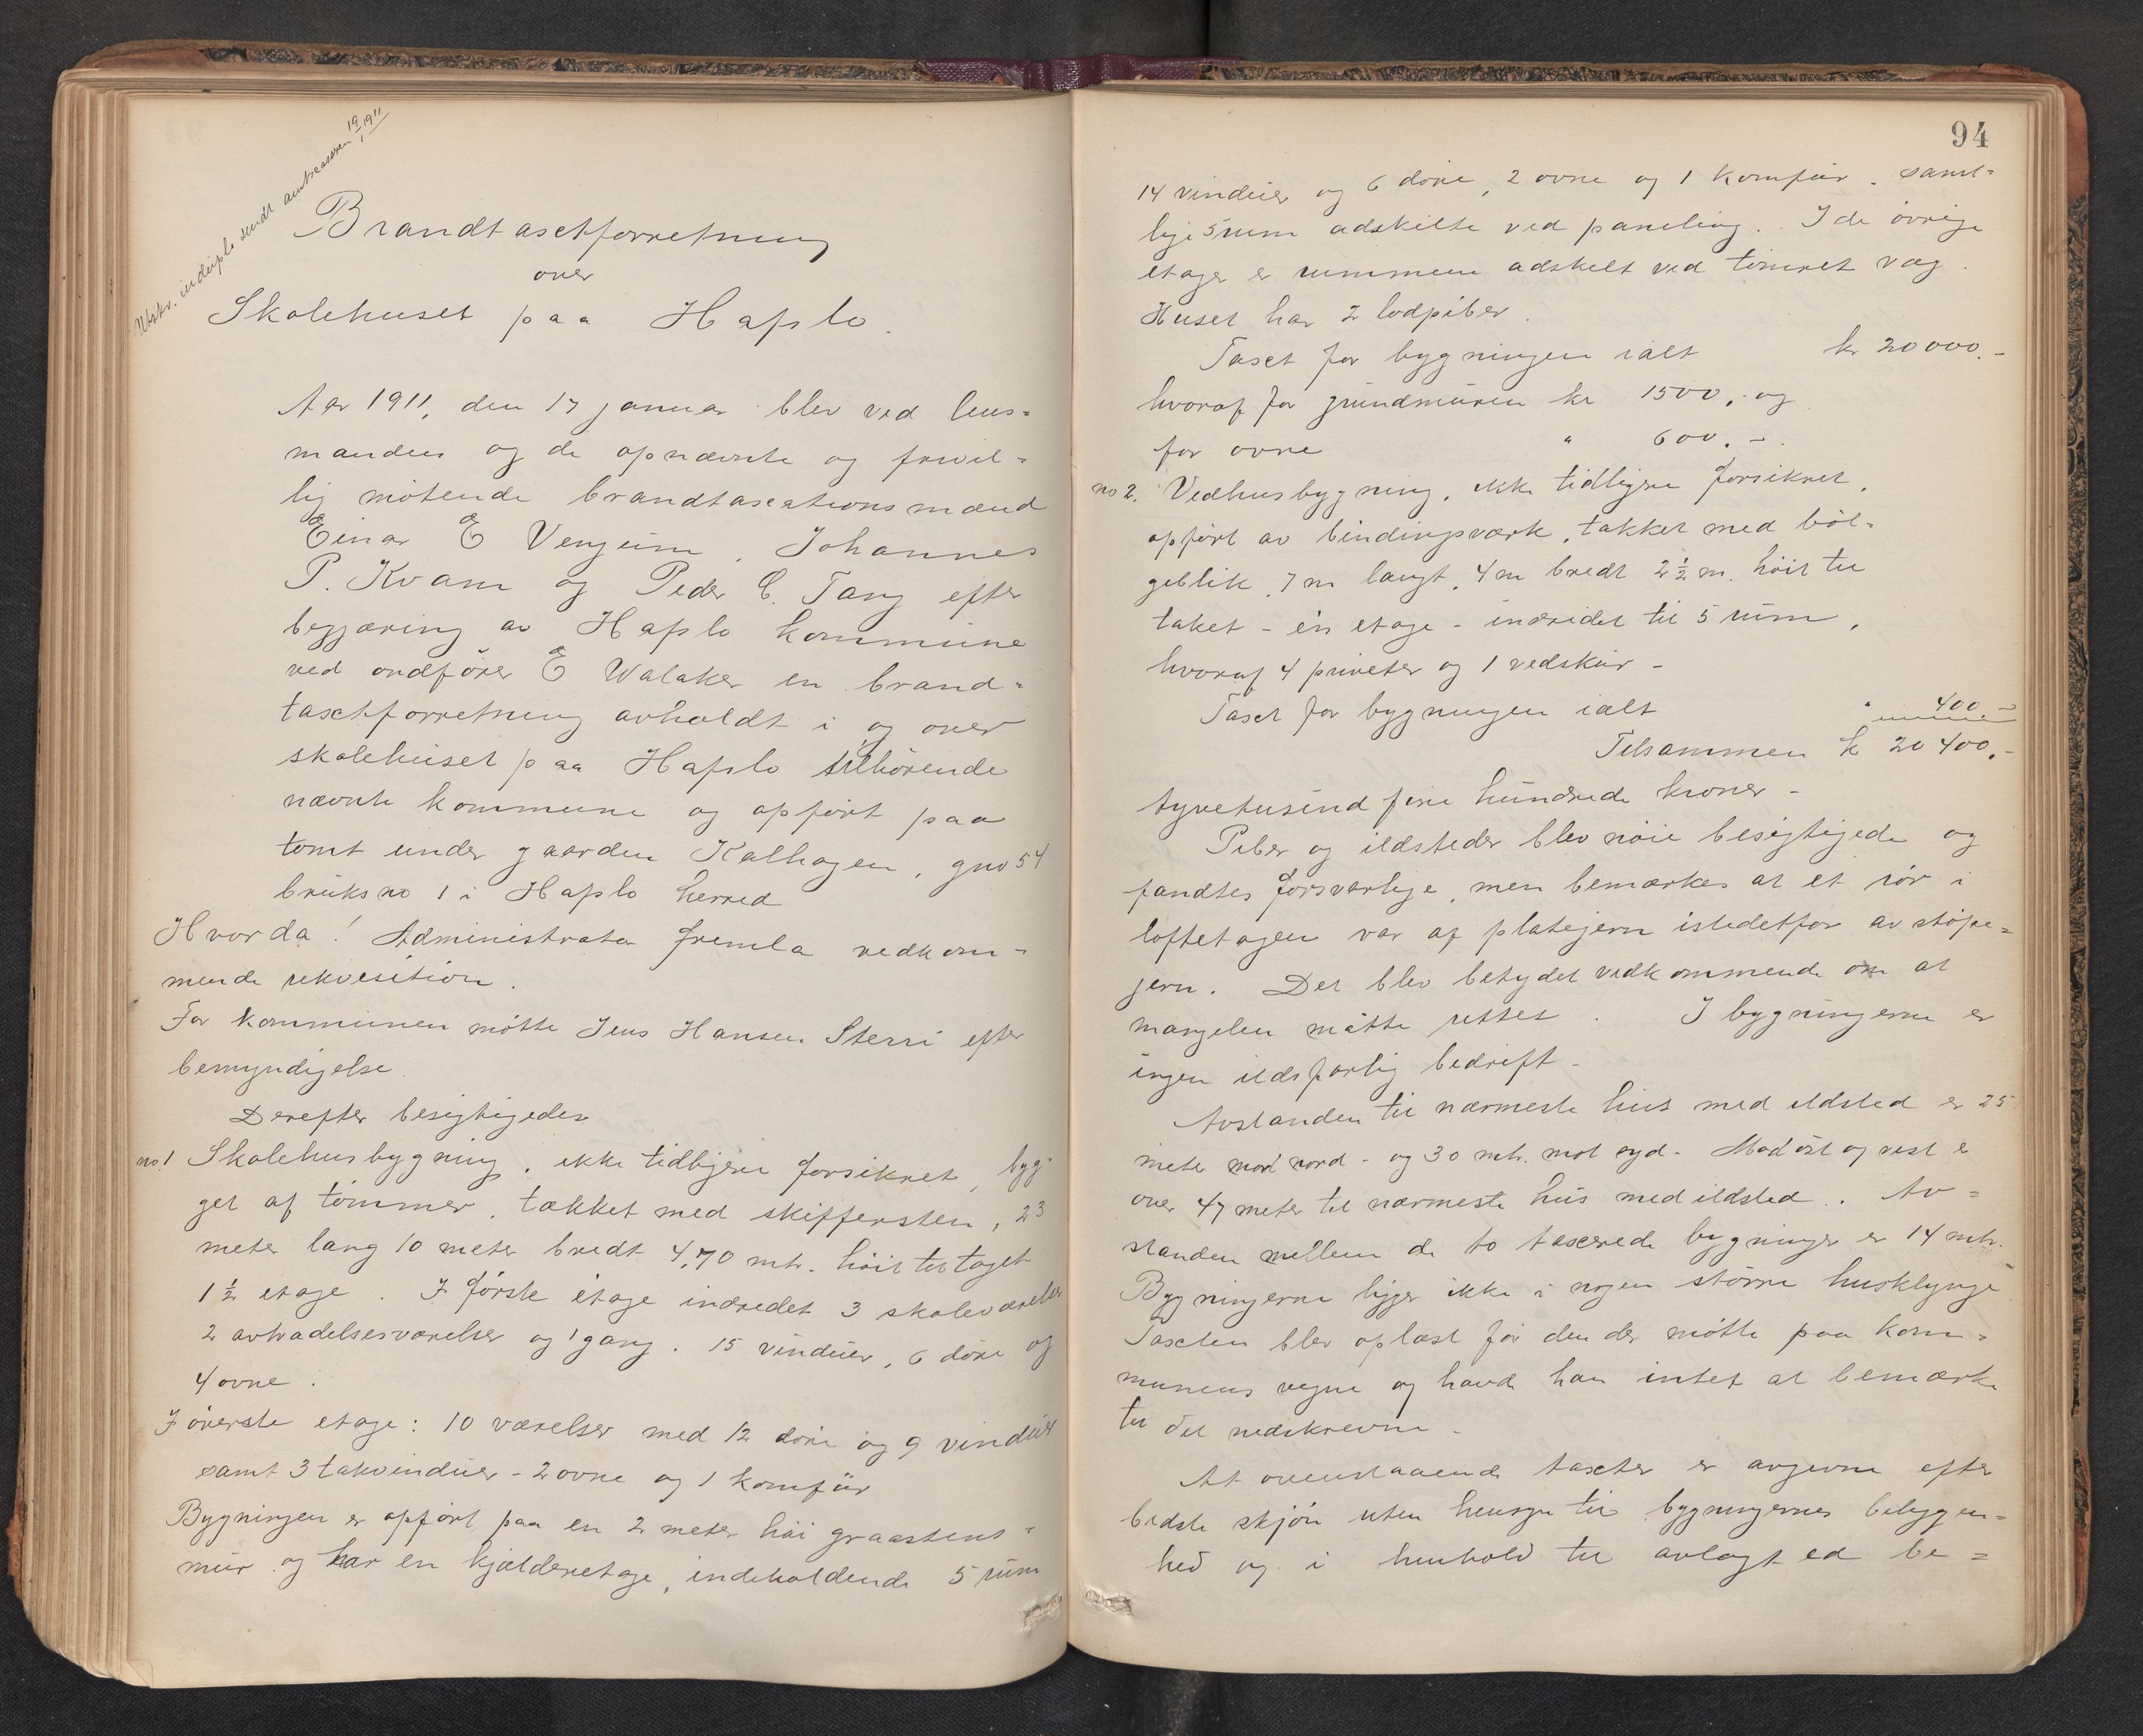 Utskr. in duplo sendt amtskasseren 19/1 1911
Brandtaxtforretning
over
Skolehuset paa Hafslo.
Aar 1911, den 17 januar blev ved lens-
manden og de opnævnte og frivil-
lig møtende brandtaxationsmænd
Einar E Venjum, Johannes
P. Kvam og Peder C. Tang efter
begjæring av Hafslo kommune
ved ordfører E Walaker en brand-
taxtforretning avholdt i og over
skolehuset paa Hafslo tilhørende
nævnte kommune og opført paa
tomt under gaarden Kalhagen, gno 54
bruksno 1 i Hafslo herred
Hvorda! Administrator fremla vedkom-
mende rekvisition.
For kommunen møtte Jens Hansen Sterri efter
bemyndigelse.
Derefter besigtigedes
no 1 Skolehusbygning, ikke tidligere forsikret, byg-
get af tømmer, tækket med skiffersten, 23
meter lang 10 meter bredt 4,70 mtr. høit til taget
1 ½ etage. I første etage indredet 3 skoleværelser
2 avtrædelsesværelser og 1 gang. 15 vinduer, 6 døre og
4 ovne.
I øverste etage: 10 værelser med 12 døre og 9 vinduer
samt 3 takvinduer - 2 ovne og 1 komfür
Bygningen er opført paa en 2 meter høi graastens-
mur og har en kjælderetage, indeholdende 5 rum
94
14 vinduer og 6 døre, 2 ovne og 1 komfur. Samt-
lige 5 rum adskilte ved paneling. I de øvrige
etager er rummene adskelt ved tømret væg.
Huset har 2 lodpiber.
Taxt for bygningen ialt kr 20000.-
hvoraf for grundmuren kr 1500,- og
for ovne " 600.-.
no 2. Vedhusbygning, ikke tidligere forsikret,
opført av bindingsværk, takket med bøl-
geblik, 7 m langt, 4 m bredt 2 ½ m. høit til
taket - én etage - indridet til 5 rum,
hvoraf 4 priveter og 1 vedskur -
Taxt for bygningen ialt " 400 -
Tilsammen k 20400.-
tyvetusind fire hundrede kroner -
Piber og ildsteder blev nøie besigtigede og
fandtes forsvarlige, men bemærkes at et rør i
loftetagen var af platejern istedetfor av støpe-
jern. Det blev betydet vedkommende om at
mangelen måtte rettes. I bygningerne er
ingen ildsfarlig bedrift -
Avstanden til nærmeste hus med ildsted er 25
meter mod nord - og 30 mtr. mot syd - Mod øst og vest e
over 47 meter til nærmeste hus med ildsted. Av-
standen mellem de to taxerede bygninger er 14 mtr.
Bygningerne ligger ikke i nogen større husklynge
Taxten blev oplæst for den der møtte paa kom-
munens vegne og havde han intet at bemærke
til det nedskrevne -
At ovenstaaende taxter er avgivne efter
bedste skjøn uten hensyn til bygningernes beliggen-
hed og i henhold til avlagt ed be-